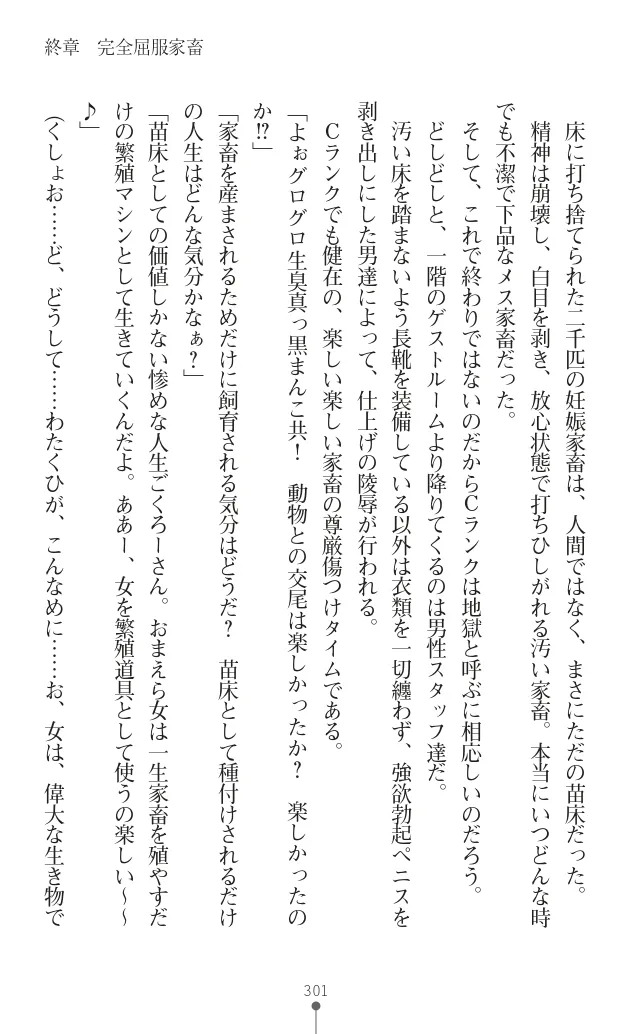 終章　完全屈服家畜
床に打ち捨てられた二千匹の妊娠家畜は、人間ではなく、まさにただの苗床だった。
精神は崩壊し、白目を剥き、放心状態で打ちひしがれる汚い家畜。本当にいつどんな時
でも不潔で下品なメス家畜だった。
そして、これで終わりではないのだからCランクは地獄と呼ぶに相応しいのだろう。
どしどしと、一階のゲストルームより降りてくるのは男性スタッフ達だ。
汚い床を踏まないよう長靴を装備している以外は衣類を一切纏わず、強欲勃起ペニスを
剥き出しにした男達によって、仕上げの陵辱が行われる。
Cランクでも健在の、楽しい楽しい家畜の尊厳傷つけタイムである。
「よぉグログロ生臭真っ黒まんこ共！　動物との交尾は楽しかったか？　楽しかったの
か!?」
「家畜を産まされるためだけに飼育される気分はどうだ？　苗床として種付けされるだけ
の人生はどんな気分かなぁ？」
「苗床としての価値しかない惨めな人生ごくろーさん。おまえら女は一生家畜を殖やすだ
けの繁殖マシンとして生きていくんだよ。ああー、女を繁殖道具として使うの楽しい～～
♪」
（くしょお……ど、どうして……わたくひが、こんなめに……お、女は、偉大な生き物で
301